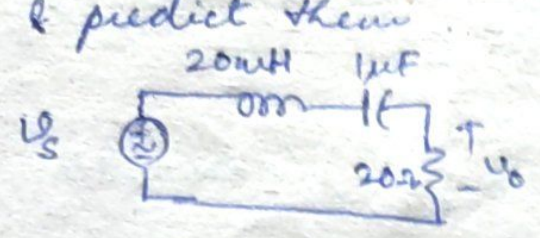 & predict them
20mH 1μF
Vs
20Ω
V0